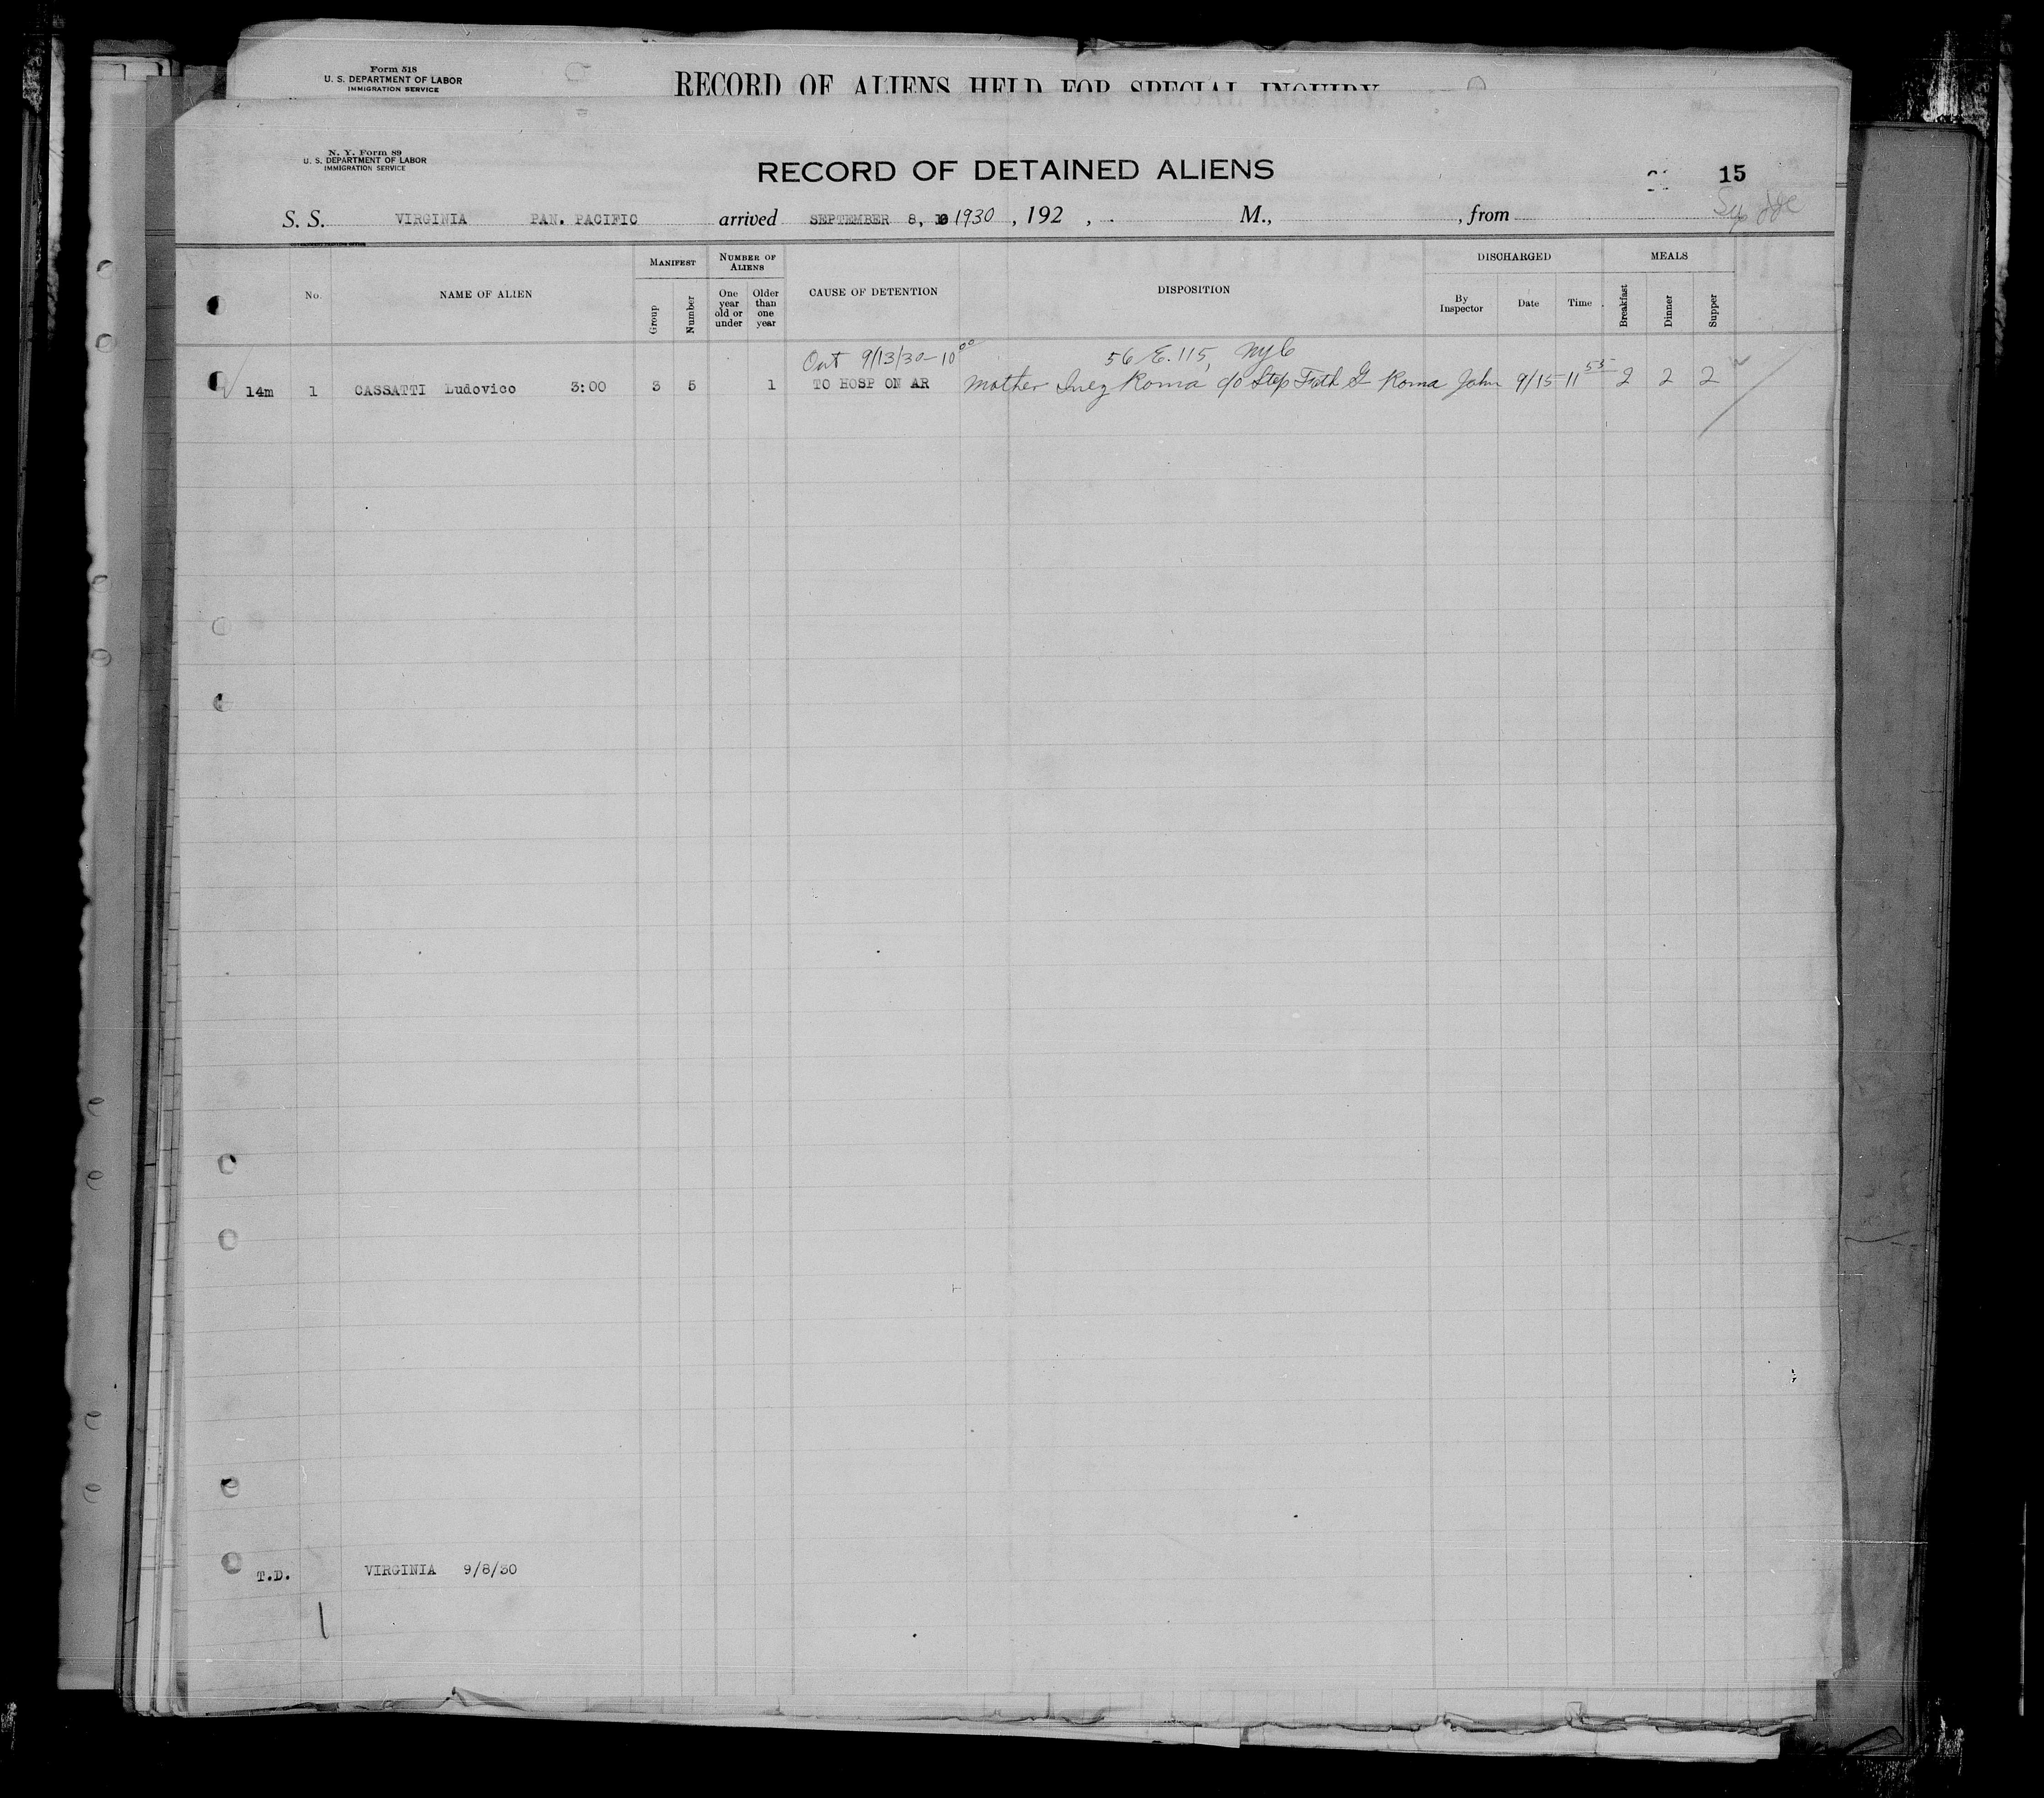 Form 518
U. S. DEPARTMENT OF LABOR
IMMIGRATION SERVICE
RECORD OF ALIENS HELD FOR SPECIAL INQUIRY
N. Y. Form 89
U. S. DEPARTMENT OF LABOR
IMMIGRATION SERVICE
RECORD OF DETAINED ALIENS
15
S. S. VIRGINIA PAN. PACIFIC arrived SEPTEMBER 8, 1930 , 192 , M., , from
No.
NAME OF ALIEN
MANIFEST
Group
Number
NUMBER OF ALIENS
One year old or under
Older than one year
CAUSE OF DETENTION
DISPOSITION
DISCHARGED
By Inspector
Date
Time
MEALS
Breakfast
Dinner
Supper
Out 9/13/30-10 00 56 E. 115, NYC
14m 1 CASSATTI Ludovico 3:00 3 5 1 TO HOSP ON AR Mother Inez Roma c/o Step Fath G Roma John 9/15 11 55 2 2 2
T.D. VIRGINIA 9/8/30
1